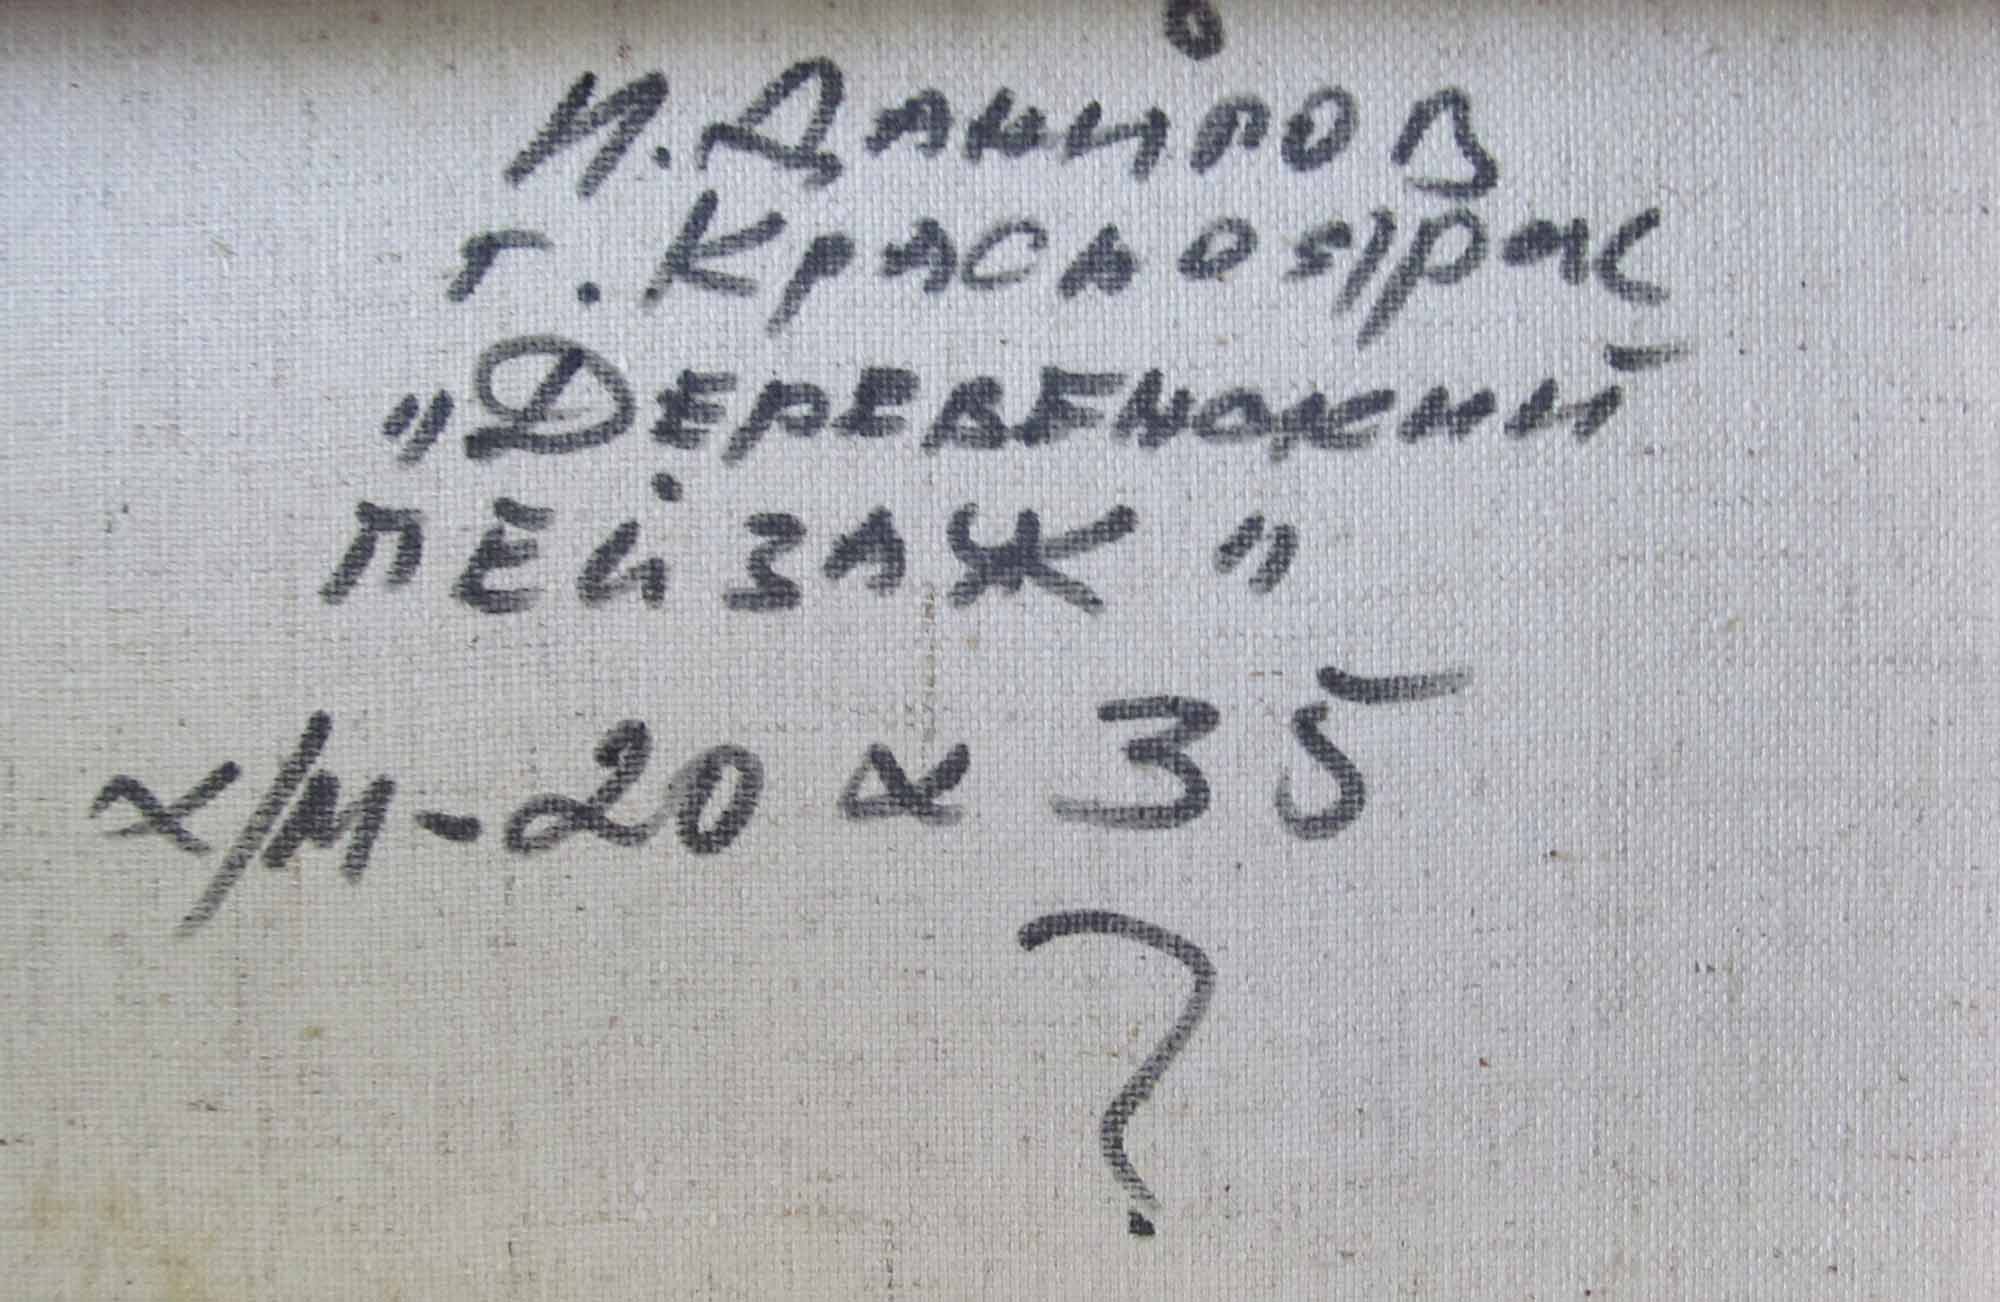 И. Данилов
г. Красноярск
„Деревенский
пейзаж"
х/м - 20 х 35
?